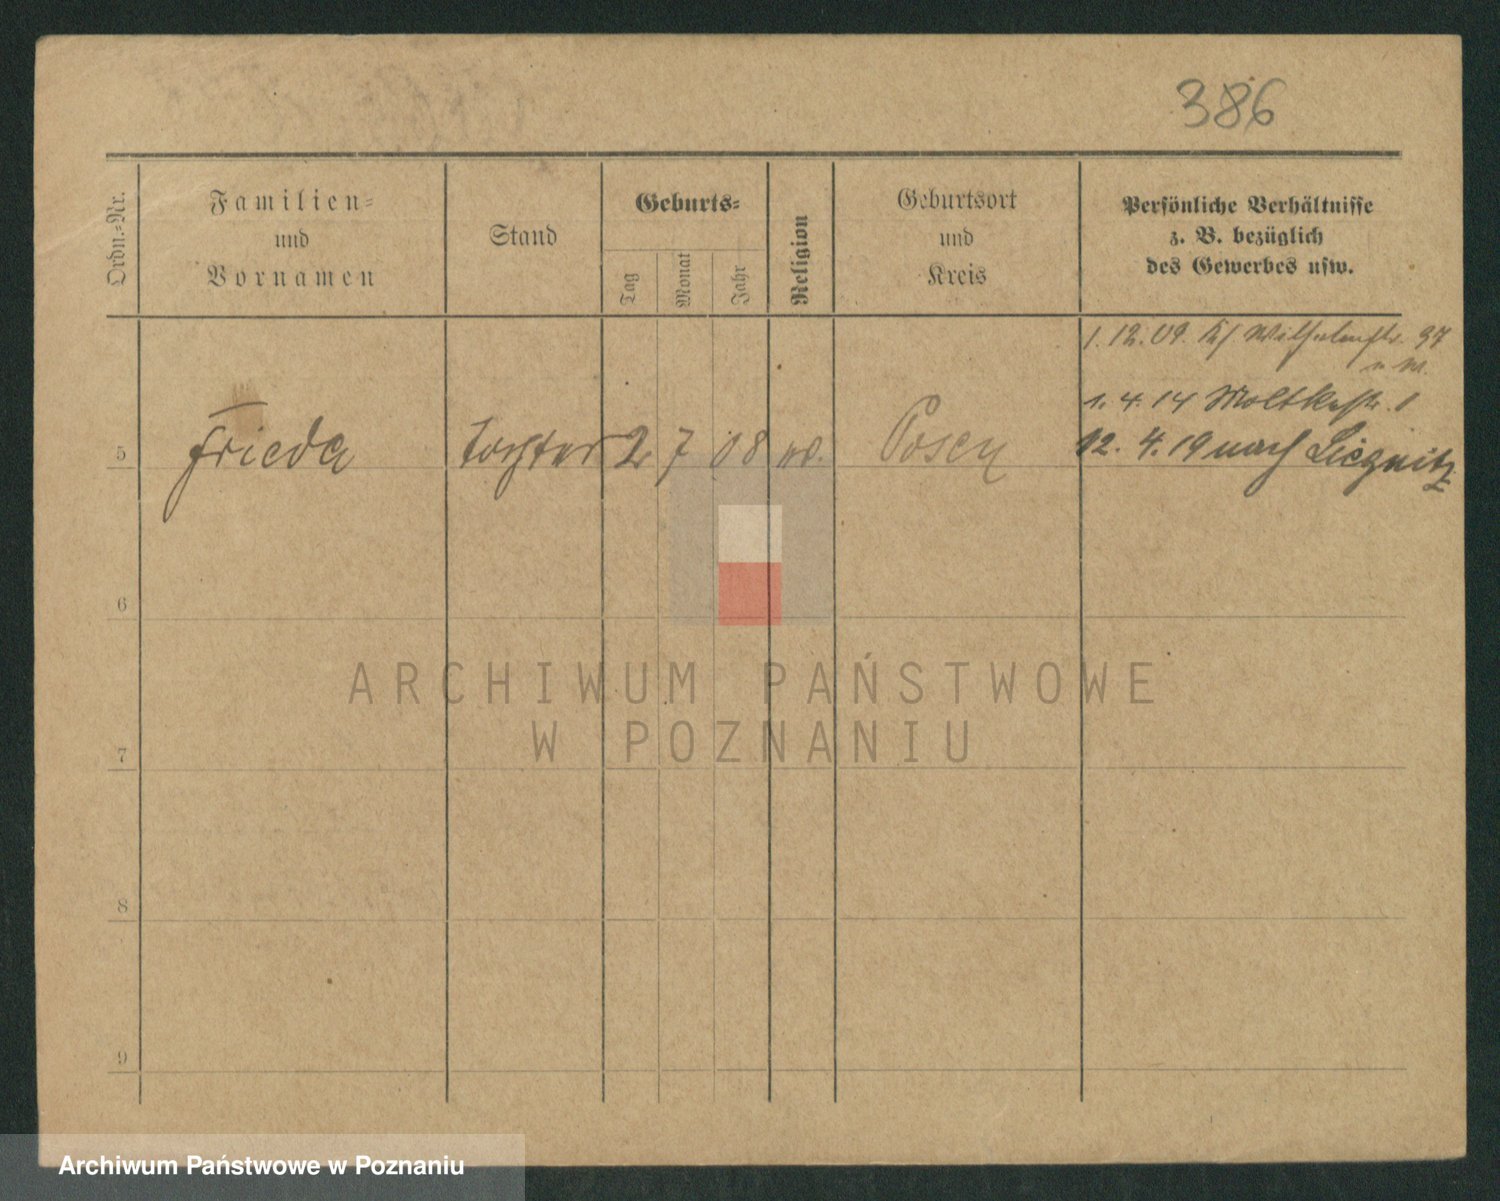 386
Ordn.-Nr.
Familien-
und
Vornamen
Stand
Geburts-
Tag
Monat
Jahr
Religion
Geburtsort
und
Kreis
Persönliche Verhältnisse
z. B. bezüglich
des Gewerbes usw.
1. 12. 09. Wilhelmstr. 37
1. 4. 14 Moltkestr. 1
5 Frieda Tochter 2 7 08 Posen 12. 4. 19 nach Liegnitz
6
7
8
9
ARCHIWUM PAŃSTWOWE
W POZNANIU
Archiwum Państwowe w Poznaniu